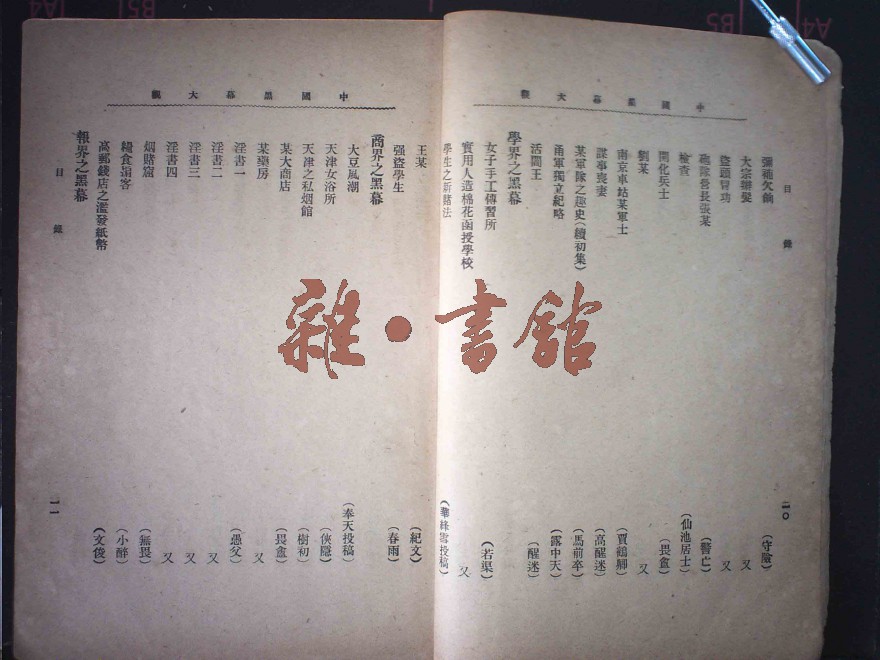 中國黑幕大觀
目錄
彌補欠餉 (守險)
大宗辮髮 又
盜頭冒功 又
砲隊營長張某 (醫亡)
檢查 (仙池居士)
開化兵士 (畏盦)
劉某 又
南京車站某軍士 (賈鶴鄉)
謀事喪妻 (高醒迷)
某軍隊之趣史(續初集) (馬前卒)
甬軍獨立紀略 (露中天)
活閻王 (醒迷)
學界之黑幕
女子手工傳習所 (若渠)
實用人造棉花函授學校 又
學生之新賭法 (華絳雪投稿)
二〇
中國黑幕大觀
王某 (紀文)
强盜學生 (春雨)
商界之黑幕
大豆風潮 (奉天投稿)
天津女浴所 (俠隱)
天津之私烟館 (樹初)
某大商店 (畏盦)
某藥房 又
淫書一 (愚父)
淫書二 又
淫書三 又
淫書四 又
烟賭窟 (無畏)
糧食掮客 (小醉)
高郵錢店之濫發紙幣 (文俊)
報界之黑幕
目錄
二一
雜·書館
A4
B5
B5
A4